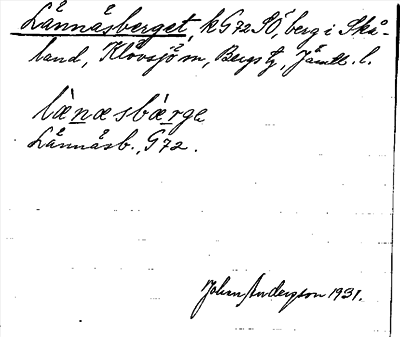 Lännäsberget, k G72 SÖ, berg i Skå-
land, Klövsjö sn, Bergs tg, Jämtl. l.
læ̀næsbæ̀rge
Lännäsb., G72.
Johan Anderzson 1931.